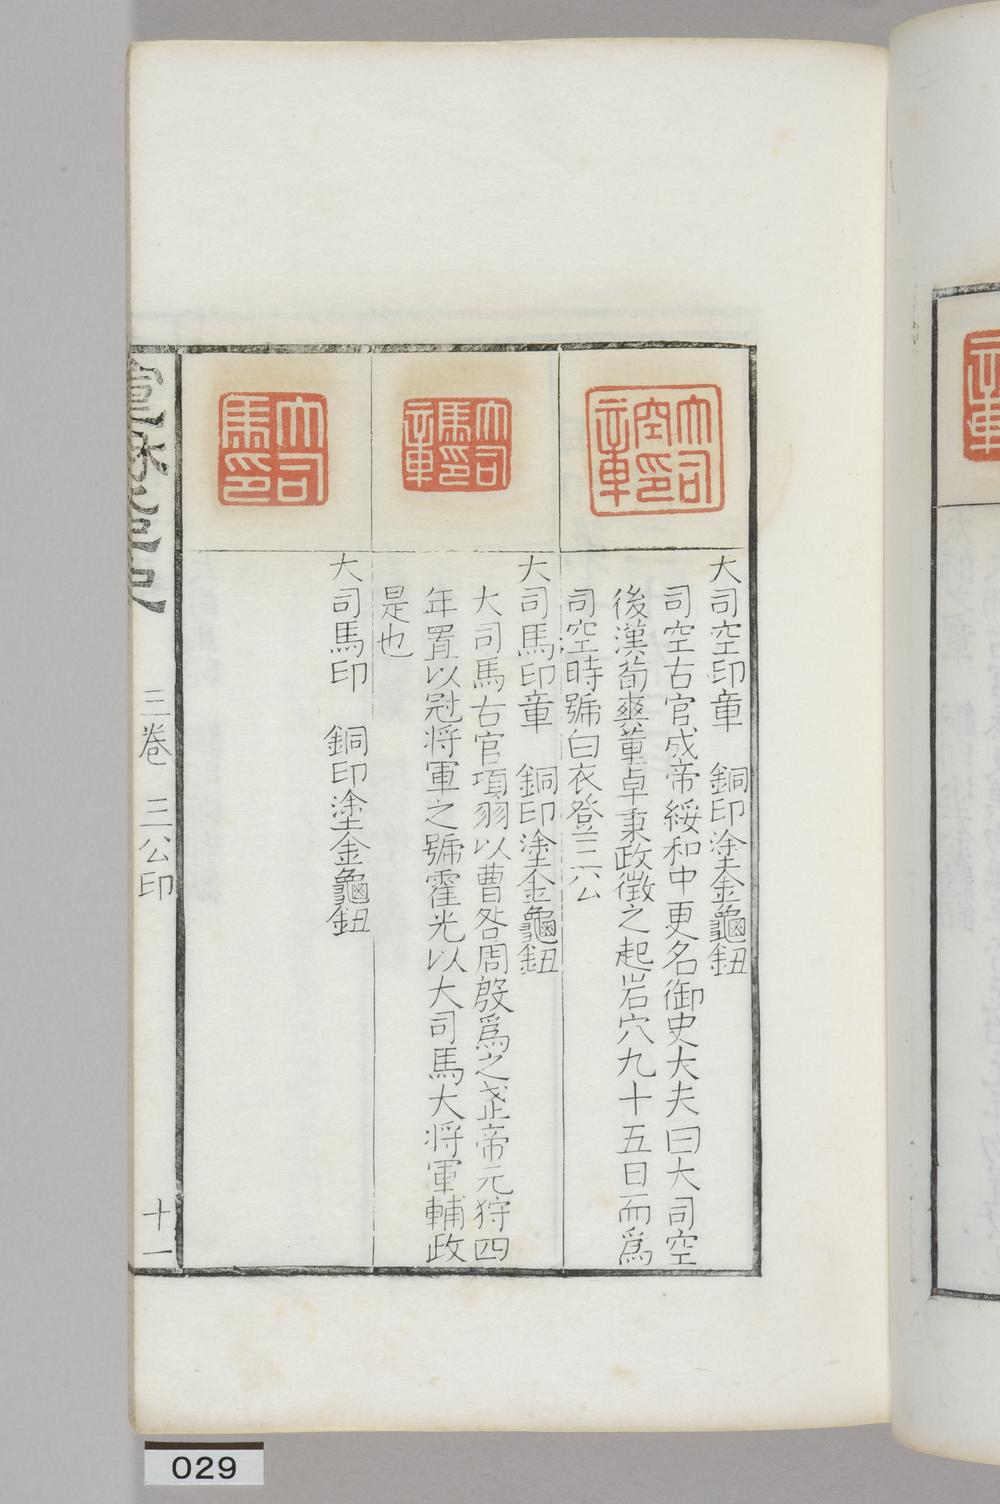 大司空印章
大司空印章　銅印塗金龜鈕
司空古官成帝綏和中更名御史大夫曰大司空
後漢荀爽董卓秉政徵之起岩穴九十五日而為
司空時號白衣登三公
大司馬印章
大司馬印章　銅印塗金龜鈕
大司馬古官項羽以曹咎周殷為之武帝元狩四
年置以冠将軍之號霍光以大司馬大将軍輔政
是也
大司馬印
大司馬印　銅印塗金龜鈕
三卷　三公印
十一
029